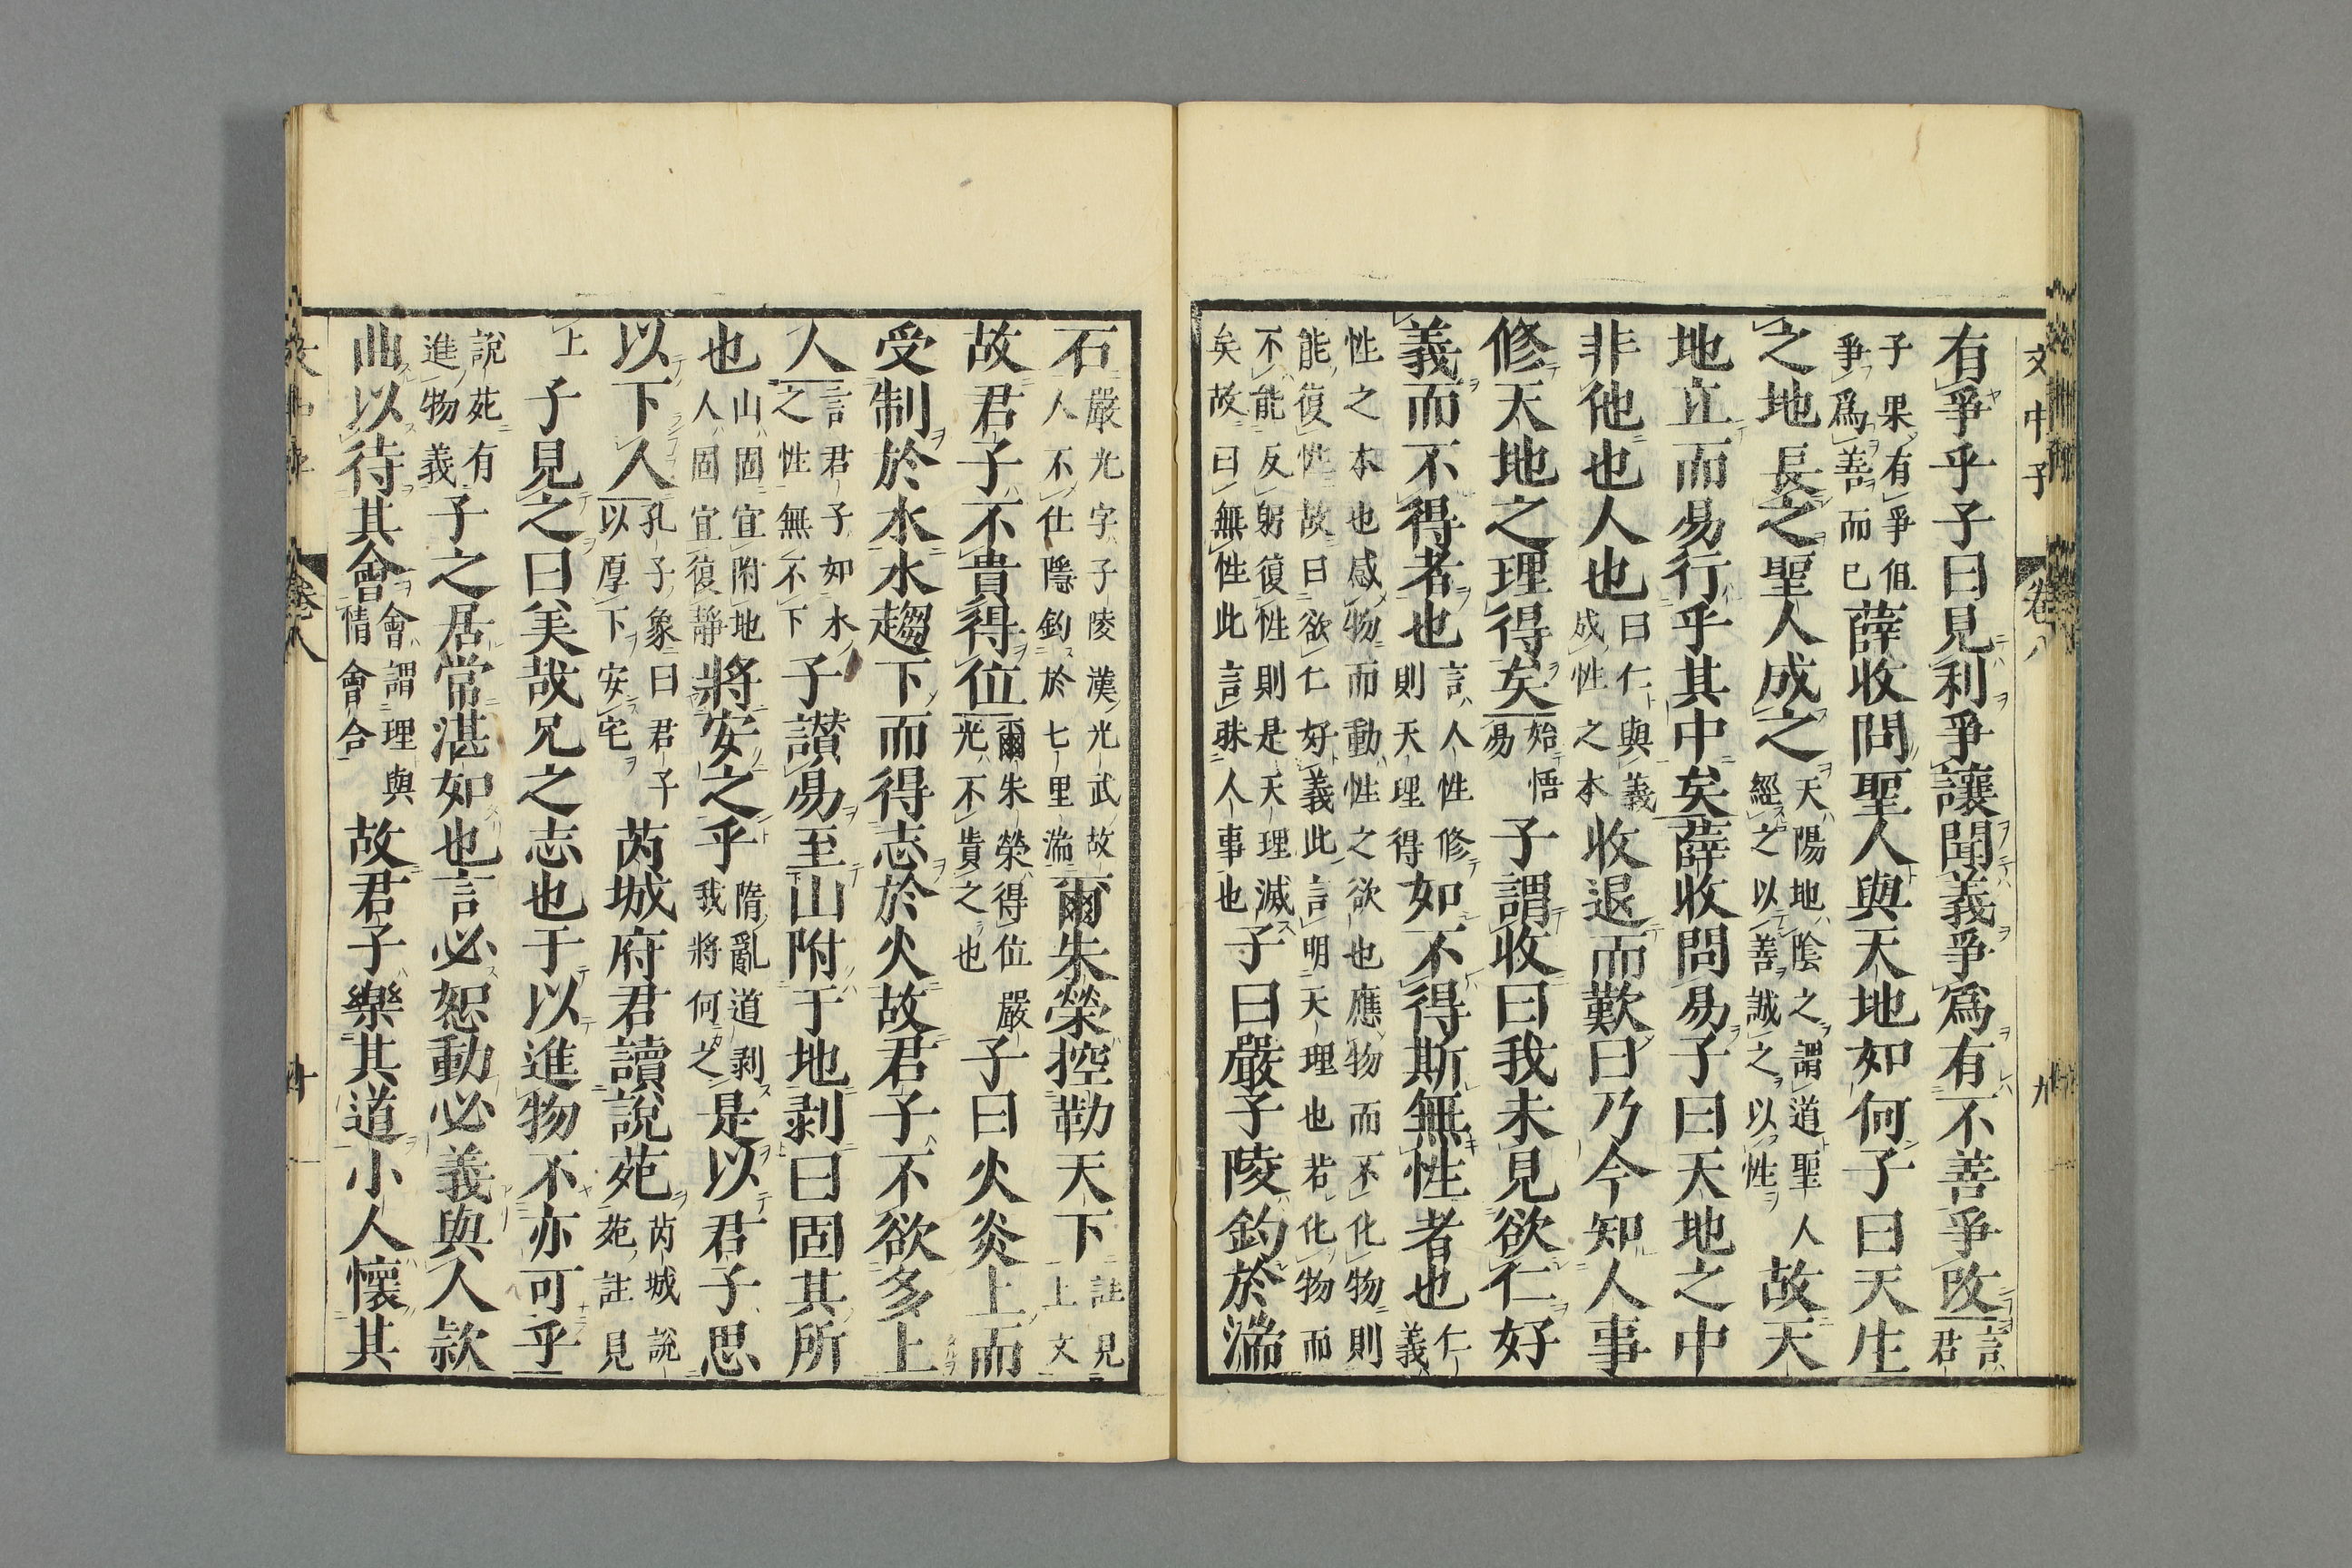 文中子　卷八　九
有爭乎子曰見利爭讓聞義爭爲有不善爭改言君
子果有爭但爭爲善而已薛收問聖人與天地如何子曰天生
之地長之聖人成之天陽地陰之謂道聖人經之以善誠之以性故天
地立而易行乎其中矣薛收問易子曰天地之中
非他也人也曰仁與義成性之本收退而歎曰乃今知人事
修天地之理得矣始悟易子謂收曰我未見欲仁好
義而不得者也言人性修則天理得如不得斯無性者也仁義
性之本也感物而動性之欲也應物而不化物則能復性故曰欲仁好義此言明天理也若化物而
不能反躬復性則是天理滅矣故曰無性此言昧人事也子曰嚴子陵釣於湍
石嚴光字子陵漢光武故人不仕隱釣於七里湍爾朱榮控勒天下註見上文
故君子不貴得位爾朱榮得位嚴光不貴之也子曰火炎上而
受制於水水趨下而得志於火故君子不欲多上
人言君子如水之性無不下子讃易至山附于地剥曰固其所
也山固宜附地人固宜復靜將安之乎隋亂道剥我將何之是以君子思
以下人孔子象曰君子以厚下安宅芮城府君讀說苑芮城說苑註見
上子見之曰美哉兄之志也于以進物不亦可乎
說苑有進物義子之居常湛如也言必恕動必義與人款
曲以待其會會謂理與情會合故君子樂其道小人懷其
卷八